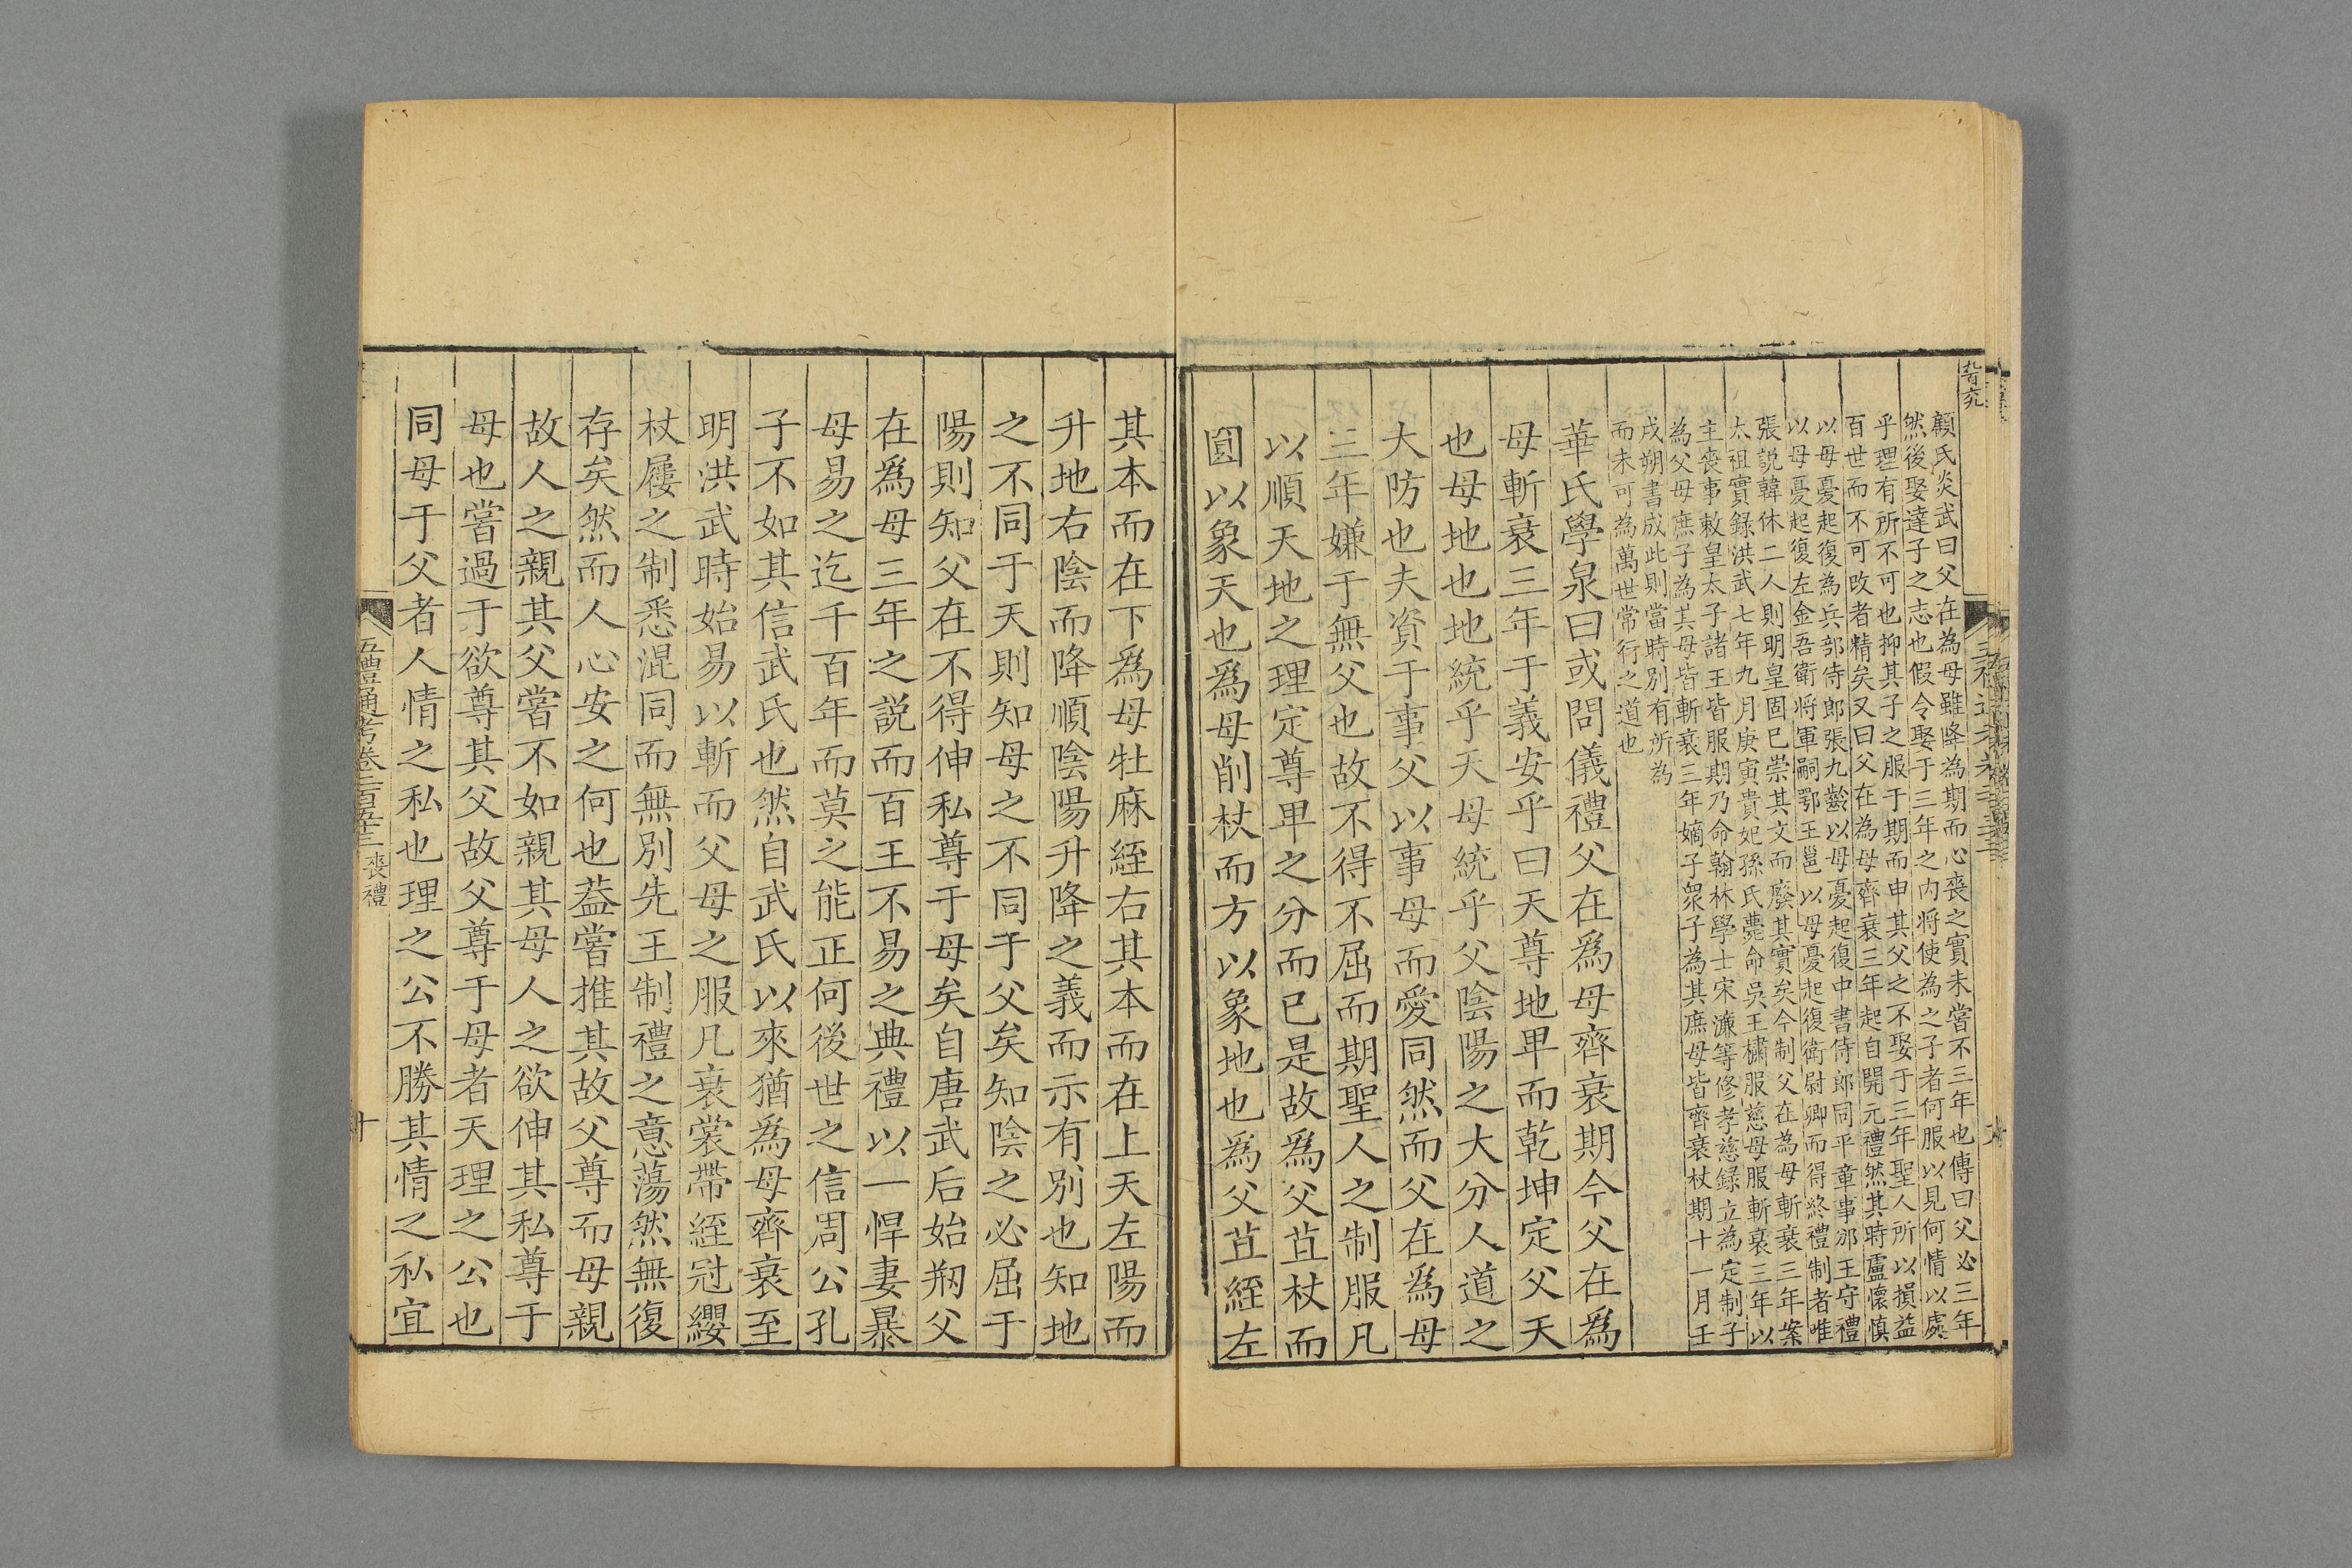 顧氏炎武曰父在為母雖降為期而心喪之實未嘗不三年也傳曰父必三年
然後娶達子之志也假令娶于三年之內將使為之子者何服以見何情以處
乎理有所不可也抑其子之服于期而申其父之不娶于三年聖人所以損益
百世而不可改者精矣又曰父在為母齊衰三年起自開元禮然其時盧懷慎
以母憂起復為兵部侍郎張九齡以母憂起復中書侍郎同平章事邠王守禮
以母憂起復左金吾衛將軍嗣鄂王邕以母憂起復衛尉卿而得終禮制者唯
張説韓休二人則明皇固已崇其文而廢其實矣今制父在為母斬衰三年案
太祖實錄洪武七年九月庚寅貴妃孫氏薨命吳王橚服慈母服斬衰三年以
主喪事敕皇太子諸王皆服期乃命翰林學士宋濂等修孝慈録立為定制子
為父母庶子為其母皆斬衰三年嫡子衆子為其庶母皆齊衰杖期十一月壬
戌朔書成此則當時別有所為
而未可為萬世常行之道也
華氏學泉曰或問儀禮父在爲母齊衰期今父在爲
母斬衰三年于義安乎曰天尊地卑而乾坤定父天
也母地也地統乎天母統乎父陰陽之大分人道之
大防也夫資于事父以事母而愛同然而父在爲母
三年嫌于無父也故不得不屈而期聖人之制服凡
以順天地之理定尊卑之分而已是故爲父苴杖而
圓以象天也爲母削杖而方以象地也爲父苴絰左
其本而在下爲母牡麻絰右其本而在上天左陽而
升地右陰而降順陰陽升降之義而示有別也知地
之不同于天則知母之不同于父矣知陰之必屈于
陽則知父在不得伸私尊于母矣自唐武后始剏父
在爲母三年之説而百王不易之典禮以一悍妻暴
母易之迄千百年而莫之能正何後世之信周公孔
子不如其信武氏也然自武氏以來猶爲母齊衰至
明洪武時始易以斬而父母之服凡衰裳帶絰冠纓
杖屨之制悉混同而無別先王制禮之意蕩然無復
存矣然而人心安之何也葢嘗推其故父尊而母親
故人之親其父嘗不如親其母人之欲伸其私尊于
母也嘗過于欲尊其父故父尊于母者天理之公也
同母于父者人情之私也理之公不勝其情之私宜
五禮通考卷二百五十三 喪禮
十